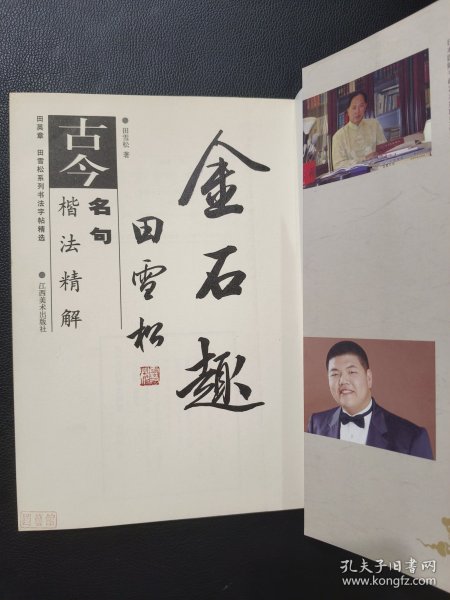 金石趣
田雪松
●田雪松 著
古今
名句
楷法精解
田英章 田雪松系列书法字帖精选
●江西美术出版社
孔夫子旧书网
www.kongfz.com